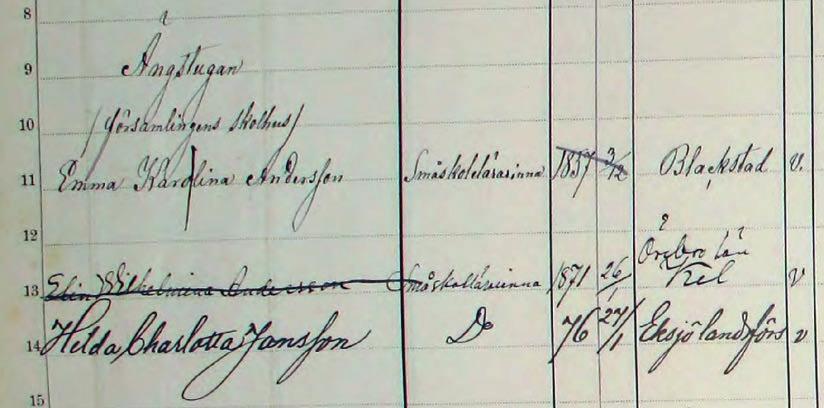 8
9 Ängstugan
10 /församlingens skolhus/
11 Emma Karolina Andersson Småskolelärarinna 1857 3/12 Blackstad v.
12 Örebro län
13 Elin Wilhelmina Andersson Småskollärarinna 1871 26/1 Kil v
14 Hilda Charlotta Jansson Do 76 27/1 Eksjö landsförs v
15